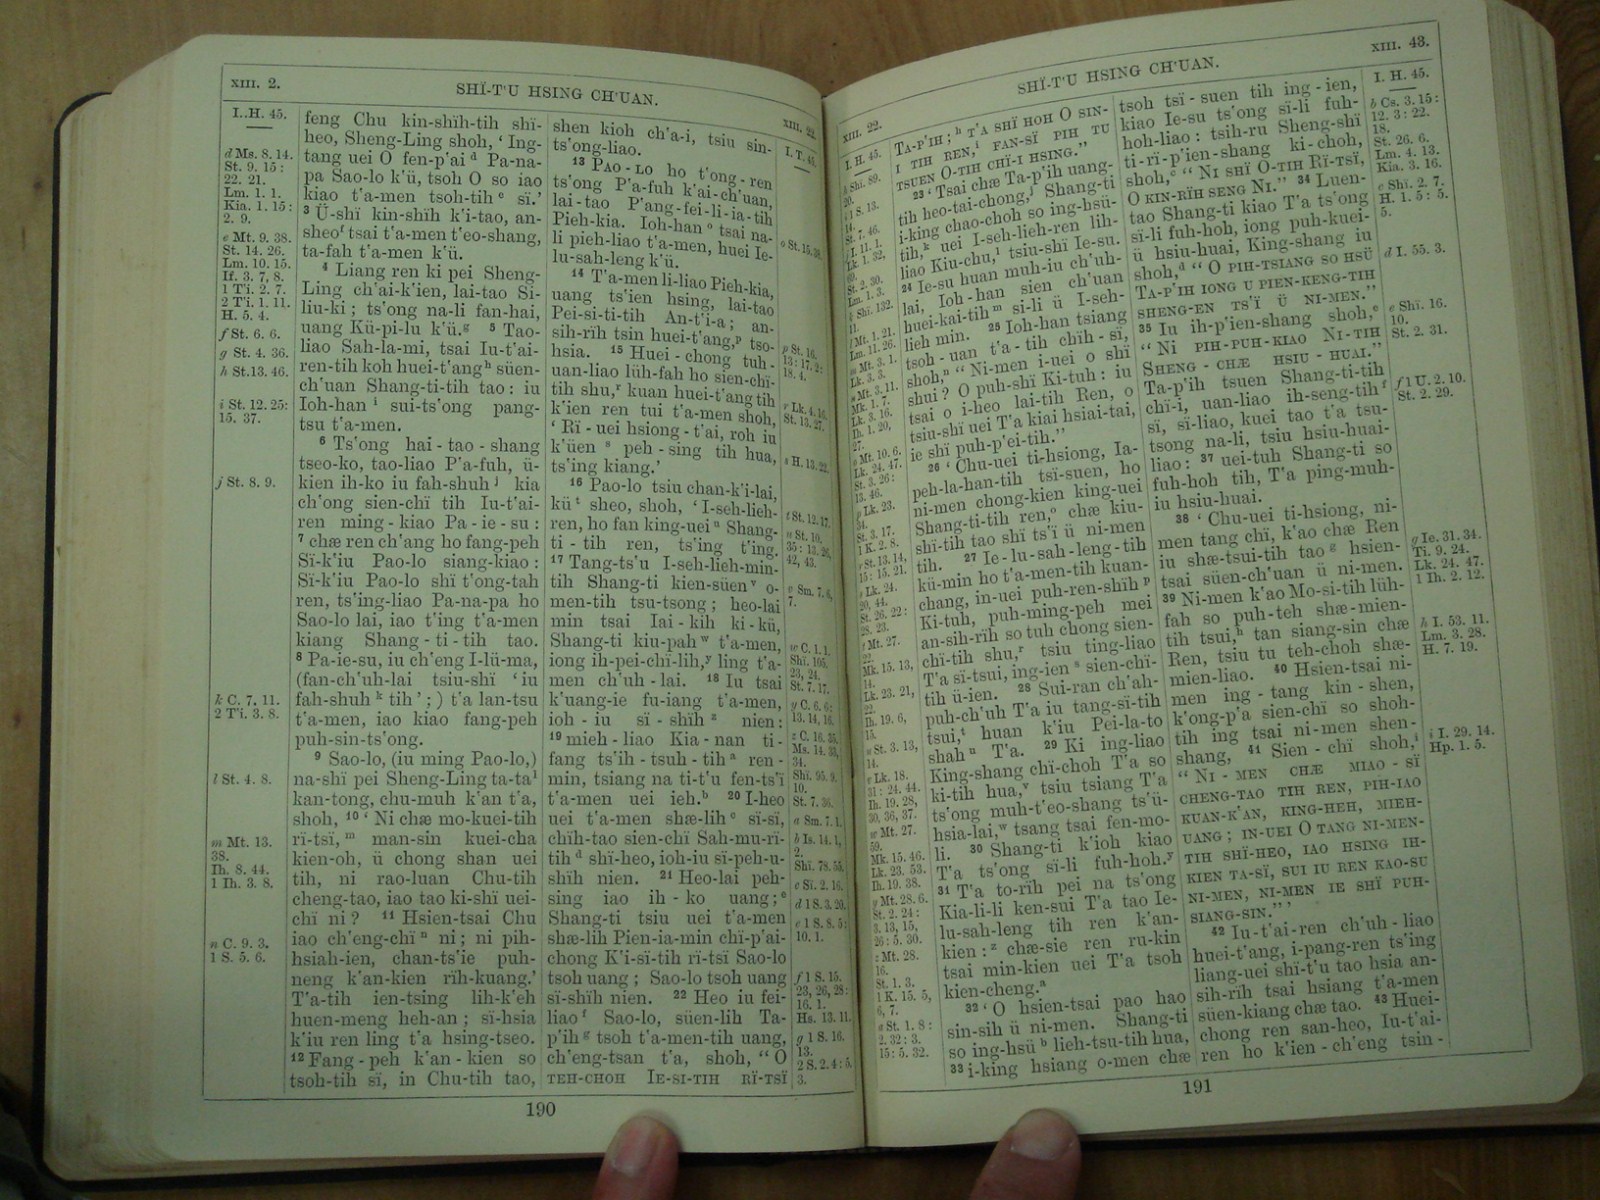 XIII. 2.
SHÏ-T'U HSING CH'UAN.
XIII. 22.
I. H. 45.
d Ms. 8. 14.
St. 9. 15 :
22. 21.
Lm. 1. 1.
Kia. 1. 15 :
2. 9.
e Mt. 9. 38.
St. 14. 26.
Lm. 10. 15.
If. 3. 7, 8.
1 T'i. 2. 7.
2 T'i. 1. 11.
H. 5. 4.
f St. 6. 6.
g St. 4. 36.
h St. 13. 46.
i St. 12. 25 :
15. 37.
j St. 8. 9.
k C. 7. 11.
2 T'i. 3. 8.
l St. 4. 8.
m Mt. 13.
38.
Ih. 8. 44.
1 Ih. 3. 8.
n C. 9. 3.
1 S. 5. 6.
feng Chu kin-shïh-tih shï-
heo, Sheng-Ling shoh, ‘ Ing-
tang uei O fen-p'ai d Pa-na-
pa Sao-lo k'ü, tsoh O so iao
kiao t'a-men tsoh-tih e sï.’
3 Ü-shï kin-shïh k'i-tao, an-
sheo f tsai t'a-men t'eo-shang,
ta-fah t'a-men k'ü.
4 Liang ren ki pei Sheng-
Ling ch'ai-k'ien, lai-tao Si-
liu-ki ; ts'ong na-li fan-hai,
uang Kü-pi-lu k'ü. g 5 Tao-
liao Sah-la-mi, tsai Iu-t'ai-
ren-tih koh huei-t'ang h süen-
ch'uan Shang-ti-tih tao : iu
Ioh-han i sui-ts'ong pang-
tsu t'a-men.
6 Ts'ong hai - tao - shang
tseo-ko, tao-liao P'a-fuh, ü-
kien ih-ko iu fah-shuh j kia
ch'ong sien-chï tih Iu-t'ai-
ren ming - kiao Pa - ie - su :
7 chæ ren ch'ang ho fang-peh
Sï-k'iu Pao-lo siang-kiao :
Sï-k'iu Pao-lo shï t'ong-tah
ren, ts'ing-liao Pa-na-pa ho
Sao-lo lai, iao t'ing t'a-men
kiang Shang - ti - tih tao.
8 Pa-ie-su, iu ch'eng I-lü-ma,
(fan-ch'uh-lai tsiu-shï ‘iu
fah-shuh k tih ’ ;) t'a lan-tsu
t'a-men, iao kiao fang-peh
puh-sin-ts'ong.
9 Sao-lo, (iu ming Pao-lo,)
na-shï pei Sheng-Ling ta-ta l
kan-tong, chu-muh k'an t'a,
shoh, 10 ‘ Ni chæ mo-kuei-tih
rï-tsï, m man-sin kuei-cha
kien-oh, ü chong shan uei
tih, ni rao-luan Chu-tih
cheng-tao, iao tao ki-shï uei-
chï ni ? 11 Hsien-tsai Chu
iao ch'eng-chï n ni ; ni pih-
hsiah-ien, chan-ts'ie puh-
neng k'an-kien rïh-kuang.’
T'a-tih ien-tsing lih-k'eh
huen-meng heh-an ; sï-hsia
k'iu ren ling t'a hsing-tseo.
12 Fang - peh k'an - kien so
tsoh-tih sï, in Chu-tih tao,
shen kioh ch'a-i, tsiu sin-
ts'ong-liao.
13 PAO - LO ho t'ong - ren
ts'ong P'a-fuh k'ai-ch'uan,
lai-tao P'ang-fei-li-ia-tih
Pieh-kia. Ioh-han o tsai na-
li pieh-liao t'a-men, huei Ie-
lu-sah-leng k'ü.
14 T'a-men li-liao Pieh-kia,
uang ts'ien hsing, lai-tao
Pei-si-ti-tih An-t'i-a ; an-
sih-rïh tsin huei-t'ang, p tso-
hsia. 15 Huei - chong tuh-
uan-liao lüh-fah ho sien-chï-
tih shu, r kuan huei-t'ang tih
k'ien ren tui t'a-men shoh,
‘ Rï - uei hsiong - t'ai, roh iu
k'üen s peh - sing tih hua,
ts'ing kiang.’
16 Pao-lo tsiu chan-k'i-lai,
kü t sheo, shoh, ‘ I-seh-lieh-
ren, ho fan king-uei u Shang-
ti - tih ren, ts'ing t'ing.
17 Tang-ts'u I-seh-lieh-min-
tih Shang-ti kien-süen v o-
men-tih tsu-tsong ; heo-lai
min tsai Iai - kih ki - kü,
Shang-ti kiu-pah w t'a-men,
iong ih-pei-chï-lih, y ling t'a-
men ch'uh - lai. 18 Iu tsai
k'uang-ie fu-iang t'a-men,
ioh - iu sï - shïh z nien :
19 mieh - liao Kia - nan ti -
fang ts'ih - tsuh - tih a ren -
min, tsiang na ti-t'u fen-ts'ï
t'a-men uei ieh. b 20 I-heo
uei t'a-men shæ-lih c sï-sï,
chïh-tao sien-chï Sah-mu-rï-
tih d shï-heo, ioh-iu sï-peh-u-
shïh nien. 21 Heo-lai peh-
sing iao ih - ko uang ; e
Shang-ti tsiu uei t'a-men
shæ-lih Pien-ia-min chï-p'ai-
chong K'i-sï-tih rï-tsï Sao-lo
tsoh uang ; Sao-lo tsoh uang
sï-shïh nien. 22 Heo iu fei-
liao f Sao-lo, süen-lih Ta-
p'ih g tsoh t'a-men-tih uang,
ch'eng-tsan t'a, shoh, “ O
TEH-CHOH IE-SI-TIH RÏ-TSÏ
o St. 15. 38.
p St. 16.
13 : 17. 2 :
18. 4.
r Lk. 4. 16.
St. 13. 27.
s H. 13. 22.
t St. 12. 17.
u St. 10.
35 : 13. 26,
42, 43.
v Sm. 7. 6,
7.
w C. 1. 1.
Shï. 105.
23, 24.
St. 7. 17.
y C. 6. 6 :
13. 14, 16.
z C. 16. 35.
Ms. 14. 33,
34.
Shï. 95. 9,
10.
St. 7. 36.
a Sm. 7. 1.
b Is. 14. 1,
2.
Shï. 78. 55.
c Sï. 2. 16.
d 1 S. 3. 20.
e 1 S. 8. 5 :
10. 1.
f 1 S. 15.
23, 26, 28 :
16. 1.
Hs. 13. 11.
g 1 S. 16.
13.
2 S. 2. 4 : 5.
3.
190
XIII. 22.
SHÏ-T'U HSING CH'UAN.
XIII. 43.
I. H. 45.
h Shï. 89.
20.
i 1 S. 13.
14.
St. 7. 46.
j I. 11. 1.
Lk. 1. 32,
69.
St. 2. 30.
Lm. 1. 3.
k Shï. 132.
11.
l Mt. 1. 21.
Lm. 11. 26.
m Mt. 3. 1.
Lk. 3. 3.
n Mt. 3. 11.
Mk. 1. 7.
Lk. 3. 16.
Ih. 1. 20,
27.
o Mt. 10. 6.
Lk. 24. 47.
St. 3. 26 :
13. 46.
p Lk. 23.
34.
St. 3. 17.
1 K. 2. 8.
r St. 13. 14,
15 : 15. 21.
s Lk. 24.
20, 44.
St. 26. 22 :
28. 23.
t Mt. 27.
22.
Mk. 15. 13,
14.
Lk. 23. 21,
22.
Ih. 19. 6,
15.
u St. 3. 13,
14.
v Lk. 18.
31 : 24. 44.
Ih. 19. 28,
30, 36, 37.
w Mt. 27.
59.
Mk. 15. 46.
Lk. 23. 53.
Ih. 19. 38.
y Mt. 28. 6.
St. 2. 24 :
3. 13, 15,
26 : 5. 30.
z Mt. 28.
16.
St. 1. 3.
1 K. 15. 5,
6, 7.
a St. 1. 8 :
2. 32 : 3.
15 : 5. 32.
TA-P'IH ; h T'A SHÏ HOH O SIN-
I TIH REN, i FAN-SÏ PIH TU
TSUEN O-TIH CHÏ-I HSING.”
23 ‘ Tsai chæ Ta-p'ih uang-
tih heo-tai-chong, j Shang-ti
i-king chao-choh so ing-hsü-
tih, k uei I-seh-lieh-ren lih-
liao Kiu-chu, l tsiu-shï Ie-su.
24 Ie-su huan muh-iu ch'uh-
lai, Ioh-han sien ch'uan
huei-kai-tih m si-li ü I-seh-
lieh min. 25 Ioh-han tsiang
tsoh-uan t'a-tih chïh-sï,
shoh, n “ Ni-men i-uei o shï
shui ? O puh-shï Ki-tuh : iu
tsai o i-heo lai-tih Ren, o
tsiu-shï uei T'a kiai hsiai-tai,
ie shï puh-p'ei-tih.”
26 ‘ Chu-uei ti-hsiong, Ia-
peh-la-han-tih tsï-suen, ho
ni-men chong-kien king-uei
Shang-ti-tih ren, o chæ kiu-
shï-tih tao shï ts'ï ü ni-men
tih. 27 Ie-lu-sah-leng-tih
kü-min ho t'a-men-tih kuan-
chang, in-uei puh-ren-shïh p
Ki-tuh, puh-ming-peh mei
an-sih-rïh so tuh chong sien-
chï-tih shu, r tsiu ting-liao
T'a sï-tsui, ing-ien s sien-chï-
tih ü-ien. 28 Sui-ran ch'ah-
puh-ch'uh T'a iu tang-sï-tih
tsui, t huan k'iu Pei-la-to
shah u T'a. 29 Ki ing-liao
King-shang chï-choh T'a so
ki-tih hua, v tsiu tsiang T'a
ts'ong muh-t'eo-shang ts'ü-
hsia-lai, w tsang tsai fen-mo-
li. 30 Shang-ti k'ioh kiao
T'a ts'ong sï-li fuh-hoh. y
31 T'a to-rïh pei na ts'ong
Kia-li-li ken-sui T'a tao Ie-
lu-sah-leng tih ren k'an-
kien : z chæ-sie ren ru-kin
tsai min-kien uei T'a tsoh
kien-cheng. a
32 ‘ O hsien-tsai pao hao
sin-sih ü ni-men. Shang-ti
so ing-hsü b lieh-tsu-tih hua,
33 i-king hsiang o-men chæ
tsoh tsï - suen tih ing - ien,
kiao Ie-su ts'ong sï-li fuh-
hoh-liao : tsih-ru Sheng-shï
ti-rï-p'ien-shang ki-choh,
shoh, c “ NI SHÏ O-TIH RÏ-TSÏ,
O KIN-RÏH SENG NI.” 34 Luen-
tao Shang-ti kiao T'a ts'ong
sï-li fuh-hoh, iong puh-kuei-
ü hsiu-huai, King-shang iu
shoh, d “ O PIH-TSIANG SO HSÜ
TA-P'IH IONG U PIEN-KENG-TIH
SHENG-EN TS'Ï Ü NI-MEN.”
35 Iu ih-p'ien-shang shoh, e
“ NI PIH-PUH-KIAO NI-TIH
SHENG - CHÆ HSIU - HUAI.”
Ta-p'ih tsuen Shang-ti-tih
chï-i, uan-liao ih-seng-tih f
sï, sï-liao, kuei tao t'a tsu-
tsong na-li, tsiu hsiu-huai-
liao : 37 uei-tuh Shang-ti so
fuh-hoh tih, T'a ping-muh-
iu hsiu-huai.
38 ‘ Chu-uei ti-hsiong, ni-
men tang chï, k'ao chæ Ren
iu shæ-tsui-tih tao g hsien-
tsai süen-ch'uan ü ni-men.
39 Ni-men k'ao Mo-si-tih lüh-
fah so puh-teh shæ-mien-
tih tsui, h tan siang-sin chæ
Ren, tsiu tu teh-choh shæ-
mien-liao. 40 Hsien-tsai ni-
men ing - tang kin - shen,
k'ong-p'a sien-chï so shoh-
tih ing tsai ni-men shen-
shang, 41 Sien - chï shoh, i
“ NI - MEN CHÆ MIAO - SÏ
CHENG-TAO TIH REN, PIH-IAO
KUAN-K'AN, KING-HEH, MIEH-
UANG ; IN-UEI O TANG NI-MEN-
TIH SHÏ-HEO, IAO HSING IH-
KIEN TA-SÏ, SUI IU REN KAO-SU
NI-MEN, NI-MEN IE SHÏ PUH-
SIANG-SIN.” ’
42 Iu-t'ai-ren ch'uh - liao
huei-t'ang, i-pang-ren ts'ing
liang-uei shï-t'u tao hsia an-
sih-rïh tsai hsiang t'a-men
süen-kiang chæ tao. 43 Huei-
chong ren san-heo, Iu-t'ai-
ren ho k'ien - ch'eng tsin -
I. H. 45.
b Cs. 3. 15 :
12. 3 : 22.
18.
St. 26. 6.
Lm. 4. 13.
Kia. 3. 16.
c Shï. 2. 7.
H. 1. 5 : 5.
5.
d I. 55. 3.
e Shï. 16.
10.
St. 2. 31.
f 1 U. 2. 10.
St. 2. 29.
g Ie. 31. 34.
Ti. 9. 24.
Lk. 24. 47.
1 Ih. 2. 12.
h I. 53. 11.
Lm. 3. 28.
H. 7. 19.
i I. 29. 14.
Hp. 1. 5.
191